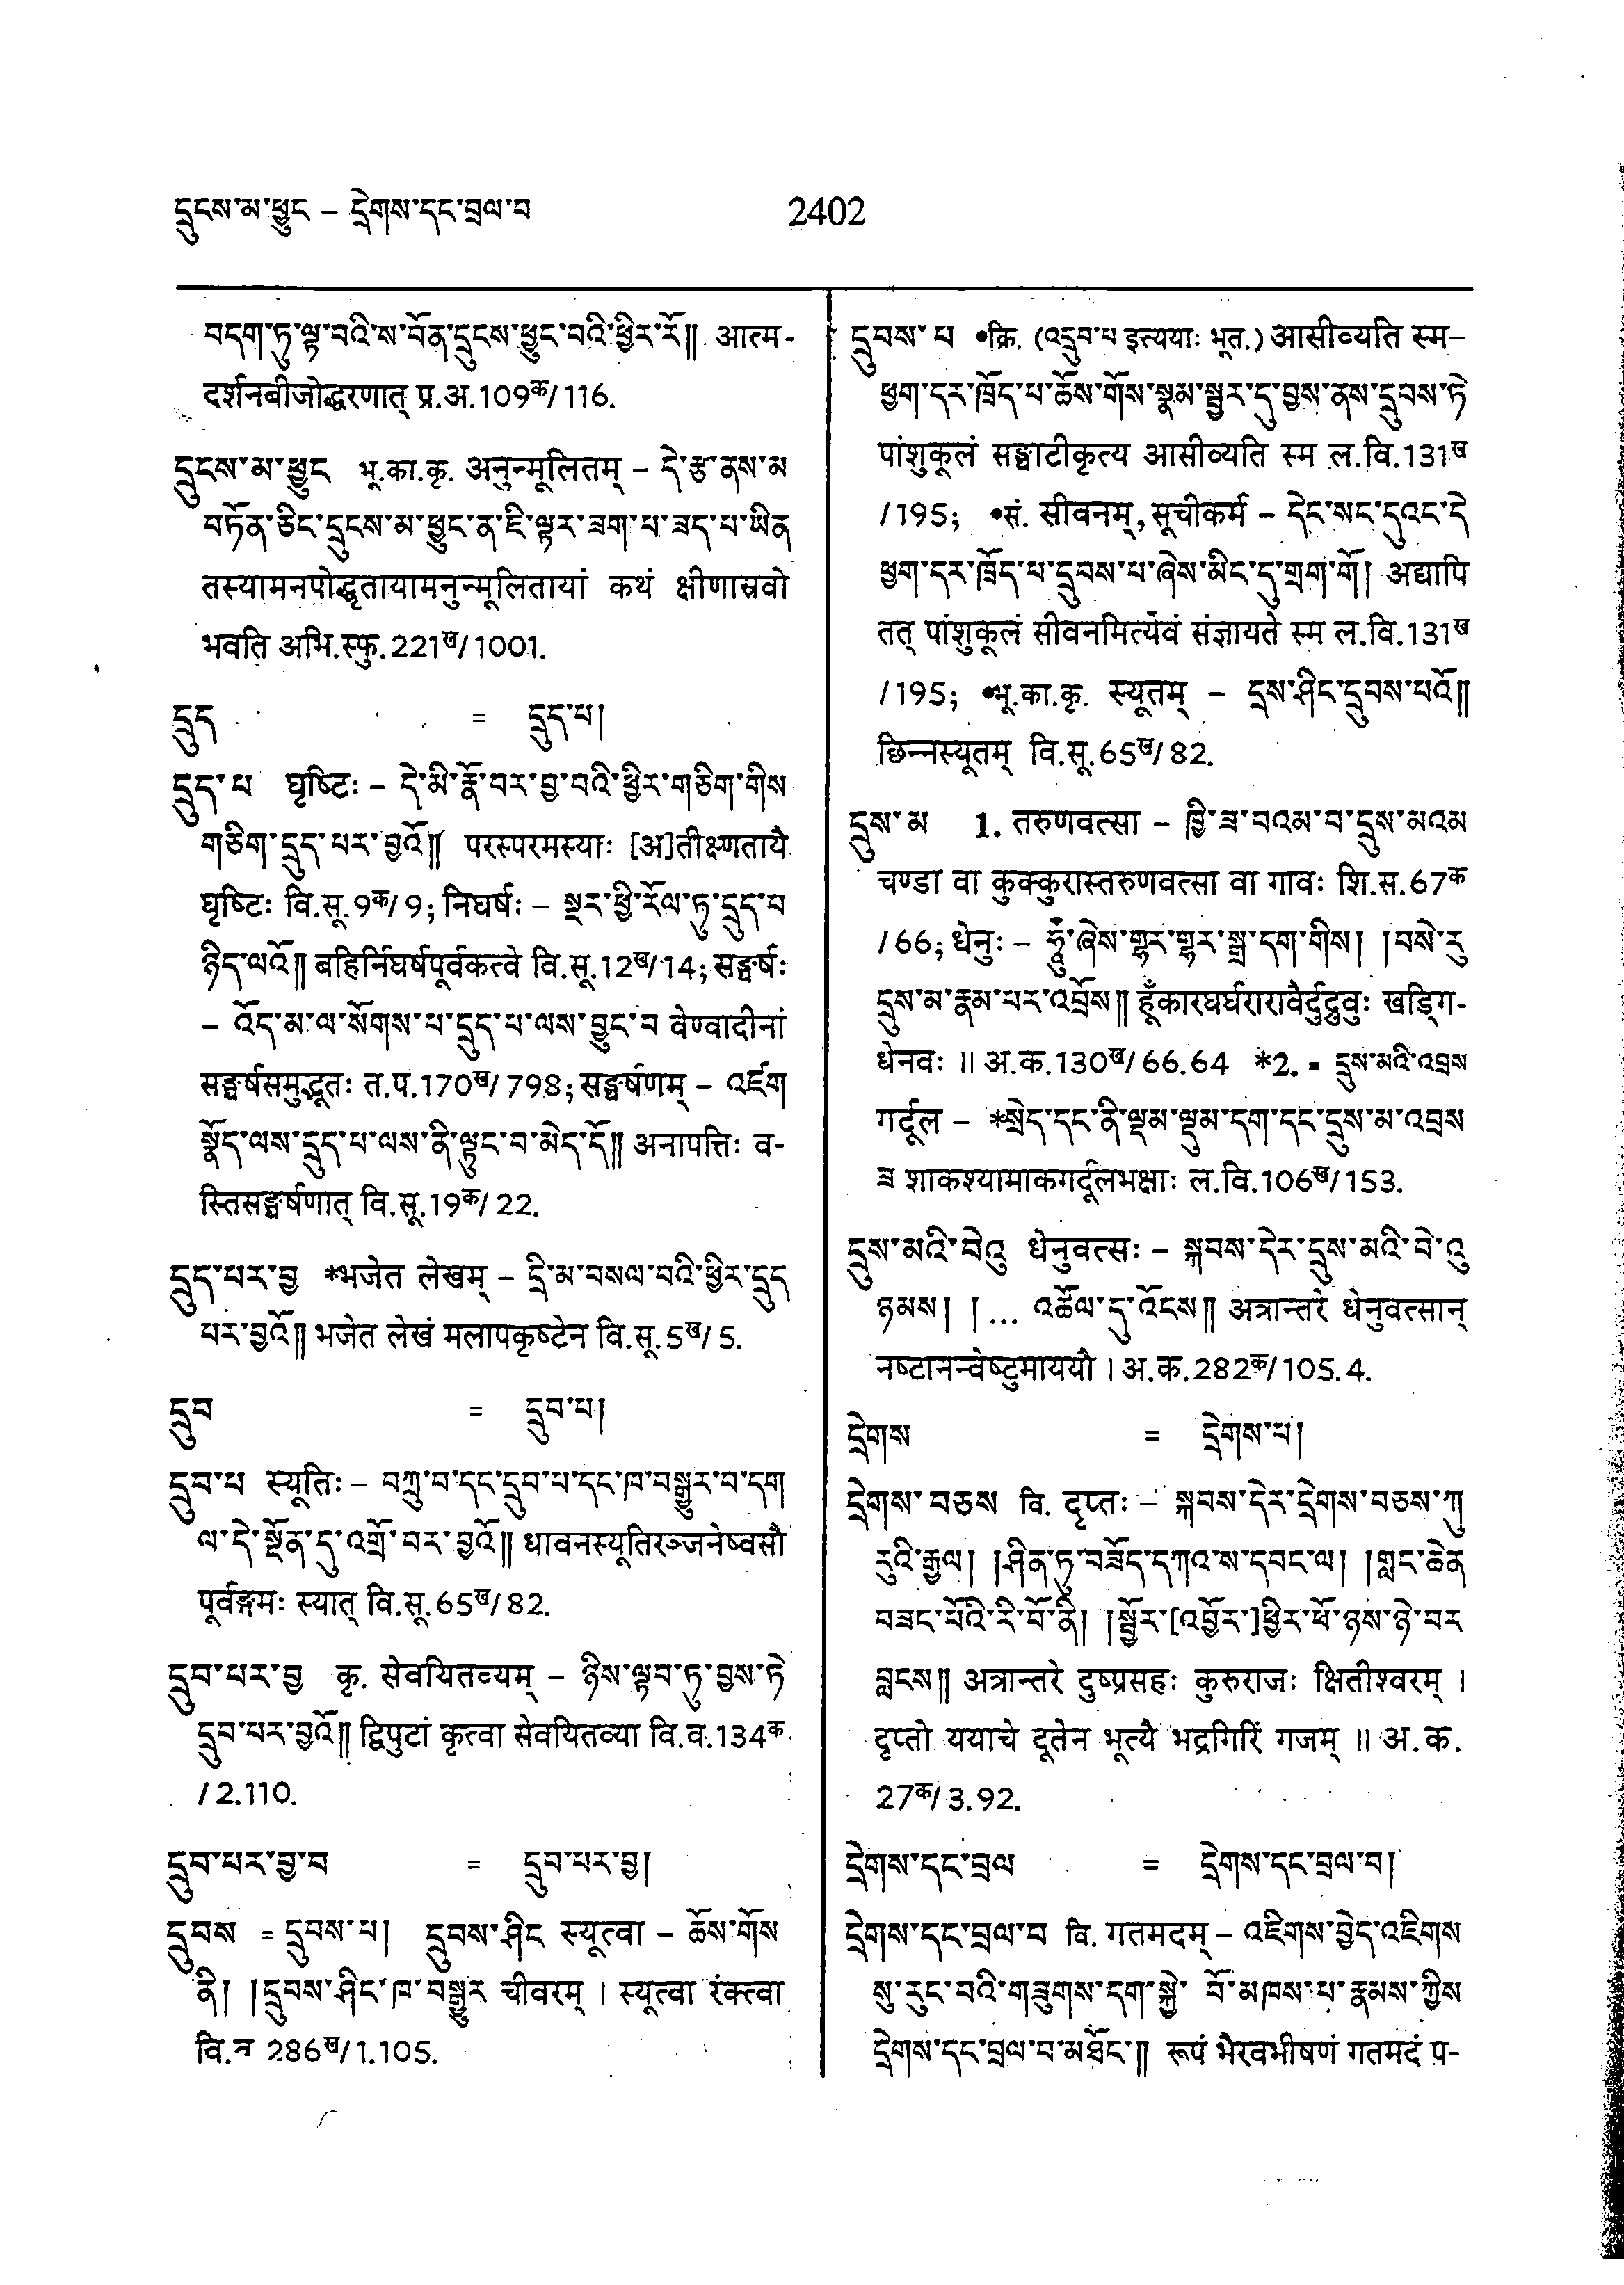 དྲུངས་མ་ཕྱུང – དྲེགས་དང་བྲལ་བ
2402
བདག་ཏུ་ལྟ་བའི་ས་བོན་དྲུངས་ཕྱུང་བའི་ཕྱིར་རོ༎ आत्म-
दर्शनबीजोद्धरणात् प्र.अ.109क/116.
དྲུངས་མ་ཕྱུང भू.का.कृ. अनुन्मूलितम् – དེ་རྩ་ནས་མ
བཏོན་ཅིང་དྲུངས་མ་ཕྱུང་ན་ཇི་ལྟར་ཟག་པ་ཟད་པ་ཡིན
तस्यामनपोद्धृतायामनुन्मूलितायां कथं क्षीणास्रवो
भवति अभि.स्फु.221ख/1001.
དྲུད = དྲུད་པ།
དྲུད་པ घृष्टिः – དེ་མི་རྣོ་བར་བྱ་བའི་ཕྱིར་གཅིག་གིས
གཅིག་དྲུད་པར་བྱའོ༎ परस्परमस्याः [अ]तीक्ष्णतायै
घृष्टिः वि.सू.9क/9; निघर्षः – སྔར་ཕྱི་རོལ་ཏུ་དྲུད་པ
ཉིད་ལའོ༎ बहिर्निघर्षपूर्वकत्वे वि.सू.12ख/14; सङ्घर्षः
– འོད་མ་ལ་སོགས་པ་དྲུད་པ་ལས་བྱུང་བ वेण्वादीनां
सङ्घर्षसमुद्भूतः त.प.170ख/798; सङ्घर्षणम् – འཛག
སྣོད་ལས་དྲུད་པ་ལས་ནི་ལྟུང་བ་མེད་དོ༎ अनापत्तिः व-
स्तिसङ्घर्षणात् वि.सू.19क/22.
དྲུད་པར་བྱ *भजेत लेखम् – དྲི་མ་བསལ་བའི་ཕྱིར་དྲུད
པར་བྱའོ༎ भजेत लेखं मलापकृष्टेन वि.सू.5ख/5.
དྲུབ = དྲུབ་པ།
དྲུབ་པ स्यूतिः – བཀྲུ་བ་དང་དྲུབ་པ་དང་ཁ་བསྒྱུར་བ་དག
ལ་དེ་སྔོན་དུ་འགྲོ་བར་བྱའོ༎ धावनस्यूतिरञ्जनेष्वसौ
पूर्वङ्गमः स्यात् वि.सू.65ख/82.
དྲུབ་པར་བྱ कृ. सेवयितव्यम् – ཉིས་ལྟབ་ཏུ་བྱས་ཏེ
དྲུབ་པར་བྱའོ༎ द्विपुटां कृत्वा सेवयितव्या वि.व.134क
/2.110.
དྲུབ་པར་བྱ་བ = དྲུབ་པར་བྱ།
དྲུབས = དྲུབས་པ། དྲུབས་ཤིང स्यूत्वा – ཆོས་གོས
ནི། །དྲུབས་ཤིང་ཁ་བསྒྱུར चीवरम् । स्यूत्वा रंक्त्वा
वि. 286ख/1.105.
དྲུབས་པ •क्रि. (འདྲུབ་པ इत्ययाः भूत.) आसीव्यति स्म–
ཕྱག་དར་ཁྲོད་པ་ཆོས་གོས་སྣམ་སྦྱར་དུ་བྱས་ནས་དྲུབས་ཏེ
पांशुकूलं सङ्घाटीकृत्य आसीव्यति स्म ल.वि.131ख
/195; •सं. सीवनम्, सूचीकर्म – དེང་སང་དུའང་དེ
ཕྱག་དར་ཁྲོད་པ་དྲུབས་པ་ཞེས་མིང་དུ་གྲག་གོ། अद्यापि
तत् पांशुकूलं सीवनमित्येवं संज्ञायते स्म ल.वि.131ख
/195; •भू.का.कृ. स्यूतम् – དྲས་ཤིང་དྲུབས་པའོ༎
छिन्नस्यूतम् वि.सू.65ख/82.
དྲུས་མ 1. तरुणवत्सा – ཁྱི་ཟ་བའམ་བ་དྲུས་མའམ
चण्डा वा कुक्कुरास्तरुणवत्सा वा गावः शि.स.67क
/66; धेनुः – ཧཱུྃ་ཞེས་གྷར་གྷར་སྒྲ་དག་གིས། །བསེ་རུ
དྲུས་མ་རྣམ་པར་འབྲོས༎ हूँकारघर्घरारावैर्दुद्रुवुः खड्गि-
धेनवः ॥ अ.क.130ख/66.64 *2. = དྲུས་མའི་འབྲས
गर्दूल – *སྲེད་དང་ནི་ལྡམ་ལྡུམ་དག་དང་དྲུས་མ་འབྲས
ཟ शाकश्यामाकगर्दूलभक्षाः ल.वि.106ख/153.
དྲུས་མའི་བེའུ धेनुवत्सः – སྐབས་དེར་དྲུས་མའི་བེ་འུ
ཉམས། །... འཚོལ་དུ་འོངས༎ अत्रान्तरे धेनुवत्सान्
नष्टानन्वेष्टुमाययौ । अ.क.282क/105.4.
དྲེགས = དྲེགས་པ།
དྲེགས་བཅས वि. दृप्तः – སྐབས་དེར་དྲེགས་བཅས་ཀུ
རུའི་རྒྱལ། །ཤིན་ཏུ་བཟོད་དཀའ་ས་དབང་ལ། །གླང་ཆེན
བཟང་པོའི་རི་བོ་ནི། །སྦྱོར་[འབྱོར་]ཕྱིར་ཕོ་ཉས་ཉེ་བར
བླངས༎ अत्रान्तरे दुष्प्रसहः कुरुराजः क्षितीश्वरम् ।
दृप्तो ययाचे दूतेन भूत्यै भद्रगिरिं गजम् ॥ अ.क.
27क/3.92.
དྲེགས་དང་བྲལ = དྲེགས་དང་བྲལ་བ།
དྲེགས་དང་བྲལ་བ वि. गतमदम् – འཇིགས་བྱེད་འཇིགས
སུ་རུང་བའི་གཟུགས་དག་སྐྱེ་ བོ་མཁས་པ་རྣམས་ཀྱིས
དྲེགས་དང་བྲལ་བ་མཐོང་༎ रूपं भैरवभीषणं गतमदं प-